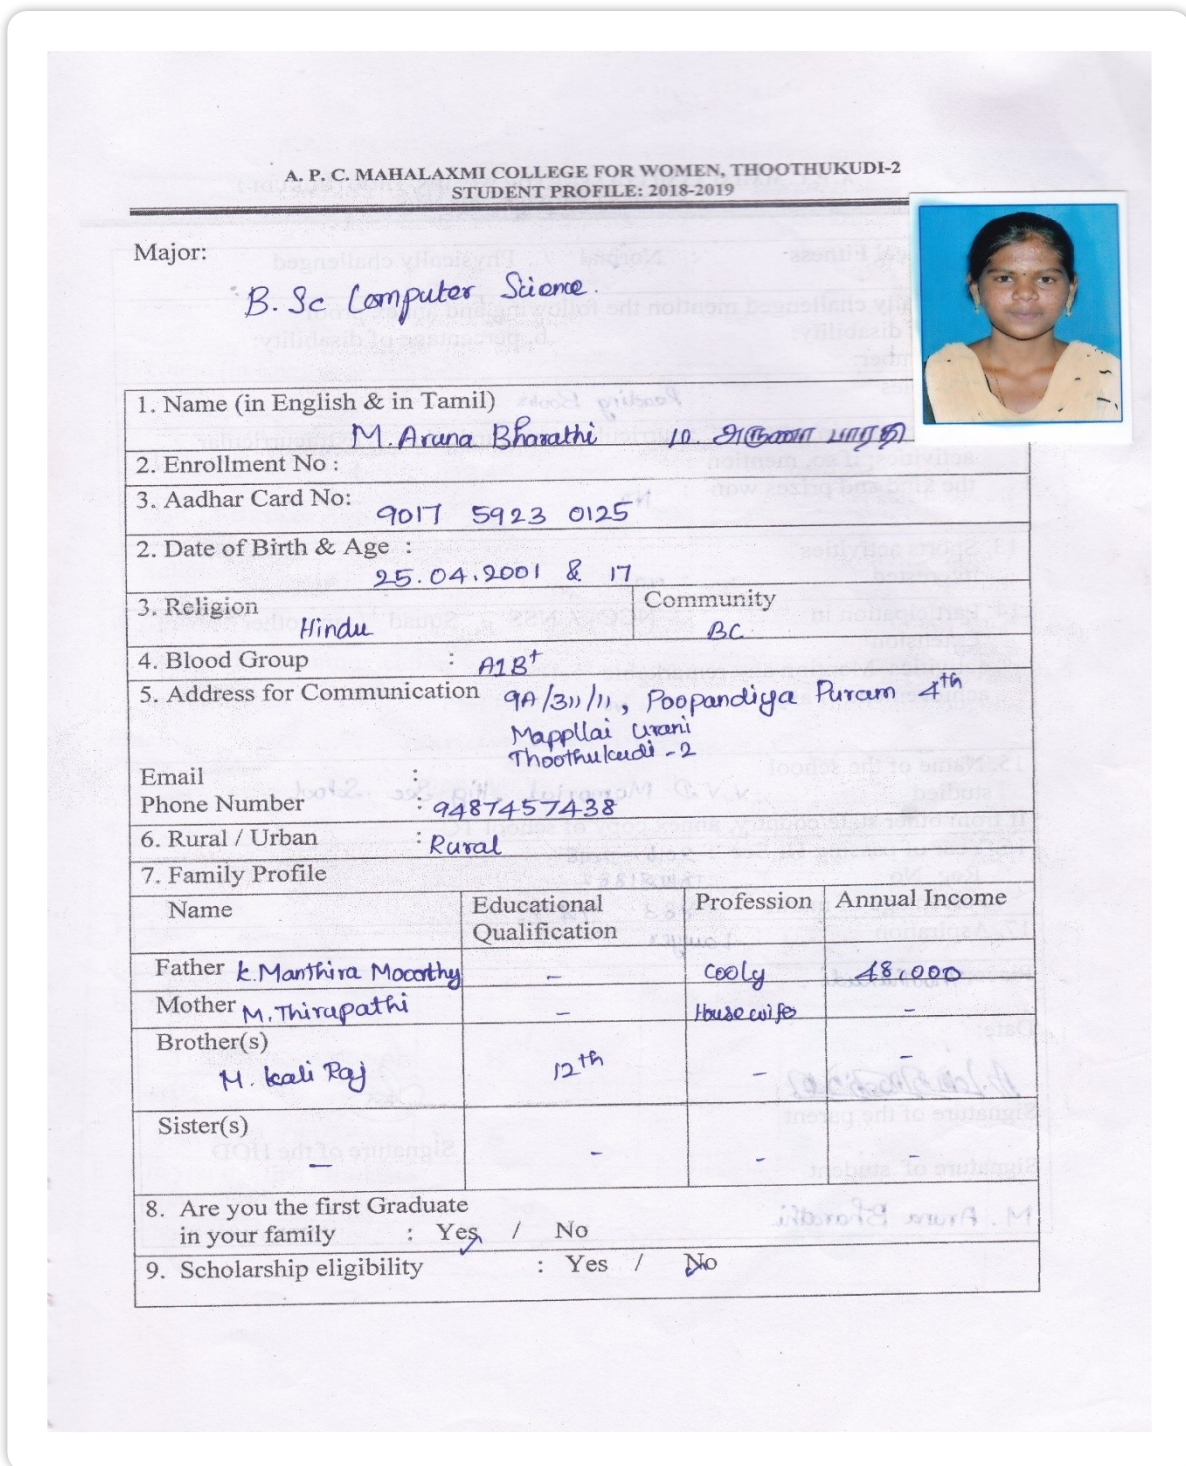 A. P. C. MAHALAXMI COLLEGE FOR WOMEN, THOOTHUKUDI-2
STUDENT PROFILE: 2018-2019
Major:
B. Sc Computer Science.
1. Name (in English & in Tamil)
M. Aruna Bharathi   ம. அருணா பாரதி
2. Enrollment No :
3. Aadhar Card No: 9017 5923 0125
2. Date of Birth & Age :
25.04.2001 & 17
3. Religion Hindu Community BC
4. Blood Group : A1B+
5. Address for Communication 9A/311/11, Poopandiya Puram 4th
Mappllai Urani
Thoothukudi - 2
Email :
Phone Number : 9487457438
6. Rural / Urban : Rural
7. Family Profile
Name Educational Qualification Profession Annual Income
Father K. Manthira Moorthy - Cooly 48.000
Mother M. Thirapathi - House wife -
Brother(s)
M. Kali Raj 12th - -
Sister(s)
- - - -
8. Are you the first Graduate
in your family : Yes / No
9. Scholarship eligibility : Yes / No